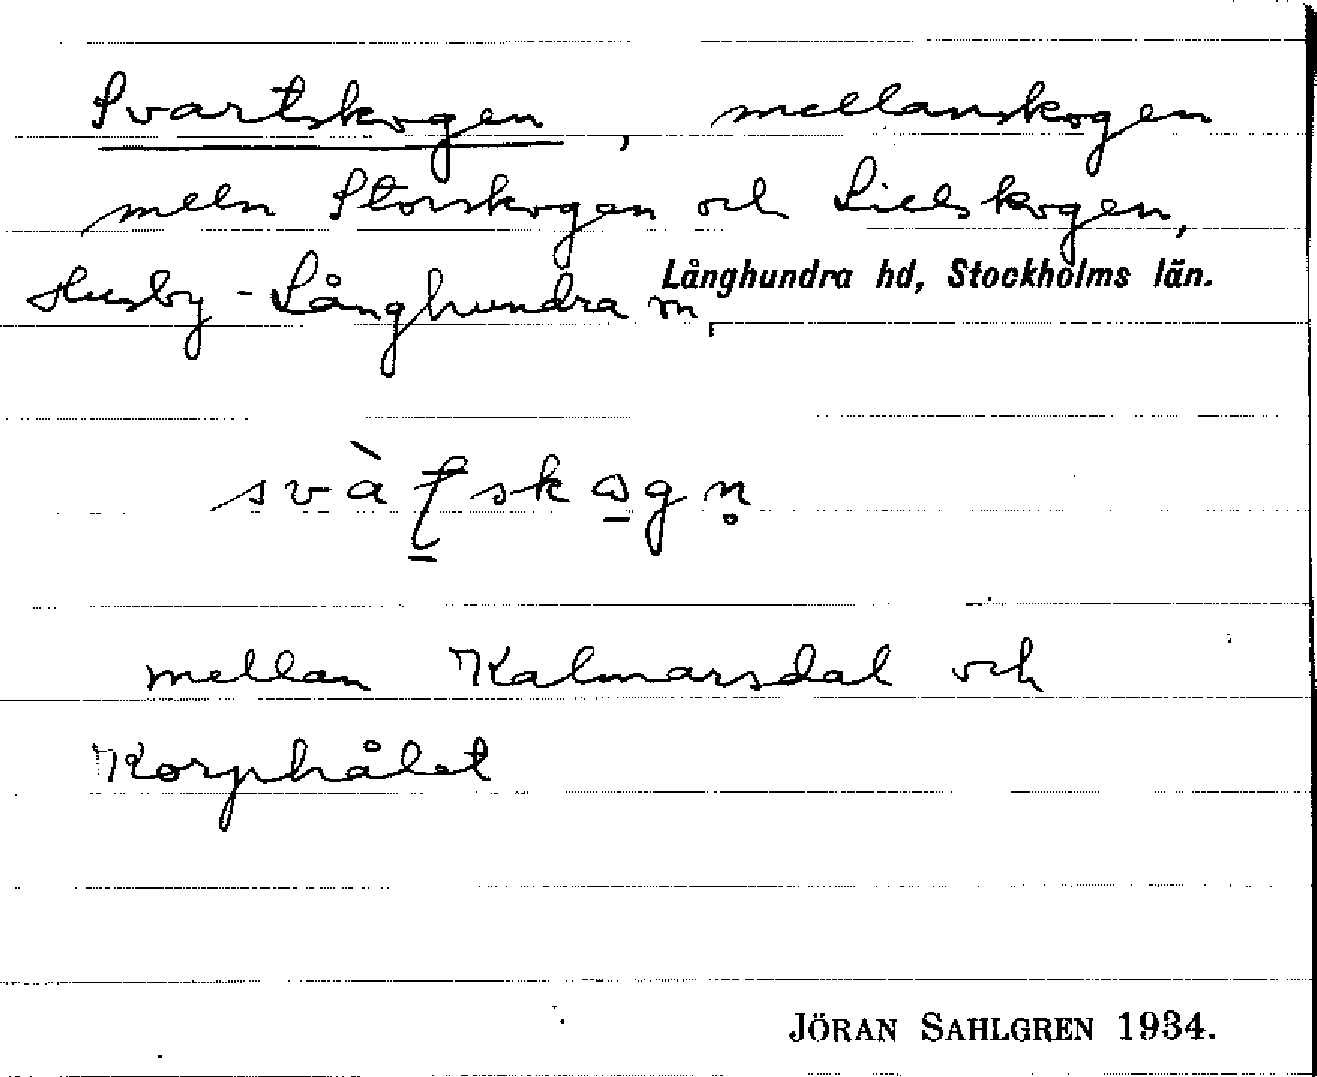 Svartskogen, mellanskogen
meln Storskogen och Lillskogen,
Husby-Långhundra sn, Långhundra hd, Stockholms län.
mellan Kalmarsdal och
Korphålet
JÖRAN SAHLGREN 1934.